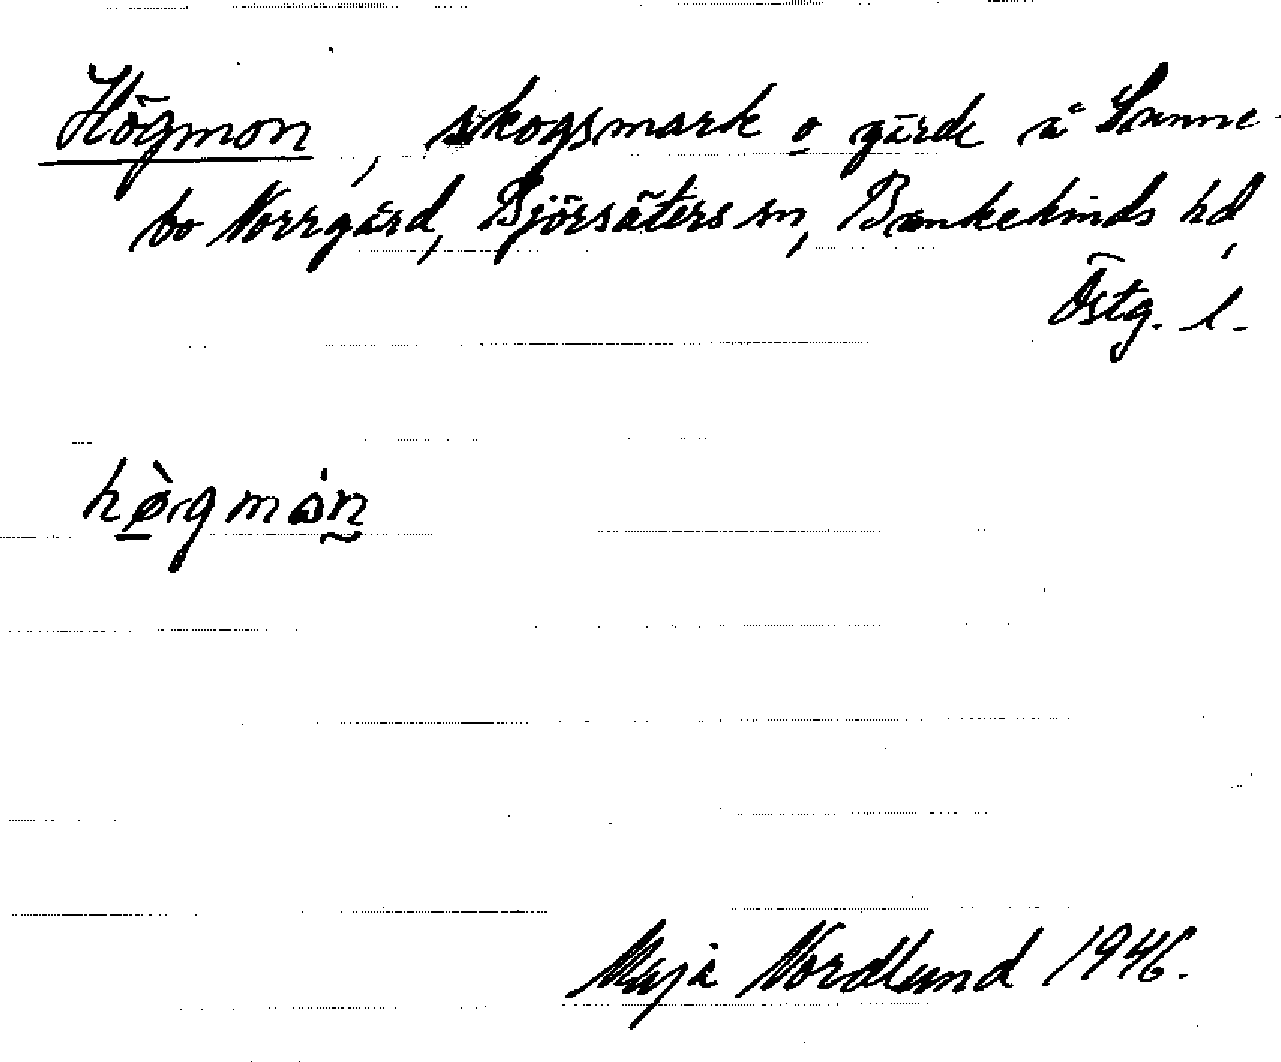 Högmon, skogsmark o gärde å Sunne-
bo Norrgård, Björsäters sn, Bankekinds hd,
Östg. l.
hø̀gmón
Maja Nordlund 1946.